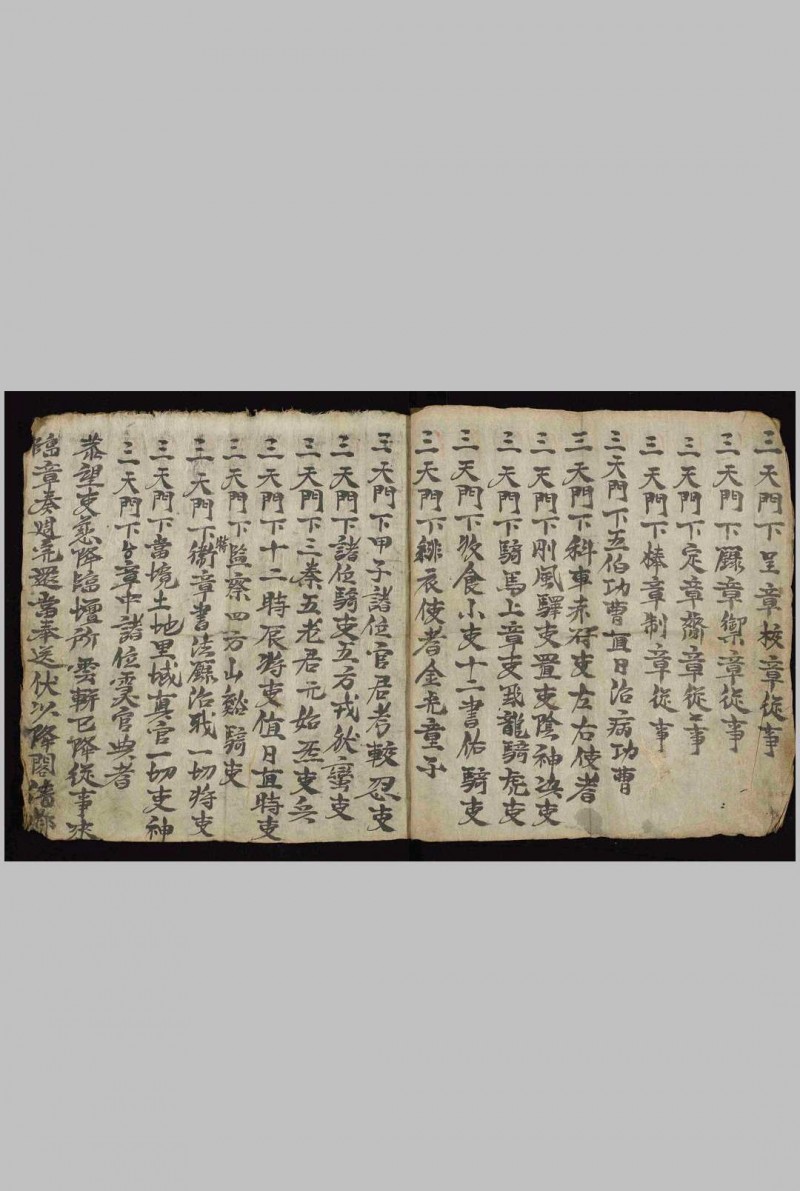 三天門下呈章校章從事
三天門下錄章禦章從事
三天門下定章齋章從事
三天門下棒章制章從事
三天門下五伯功曹直日治病功曹
三天門下科車赤符吏左右使者
三天門下刚風驛吏置吏陰神決吏
三天門下騎馬上章吏飛龍騎虎吏
三天門下收食小吏十二書佑騎吏
三天門下緋衣使者金光童子
三天門下甲子諸位官君考較忍吏
三天門下諸位騎吏五方戎狄蠻吏
三天門下三秦五老君元始炁吏兵
三天門下十二時辰将吏值日直時吏
三天門下監察四方山谿騎吏
三天門下衛章書法錄治戢一切将吏
三天門下當境土地里域真官一切吏神
三天門下今章中諸位靈官典者
恭望吏慈降臨壇所雲軿已降從事来
臨章奏周完還當奉送伏以降閣